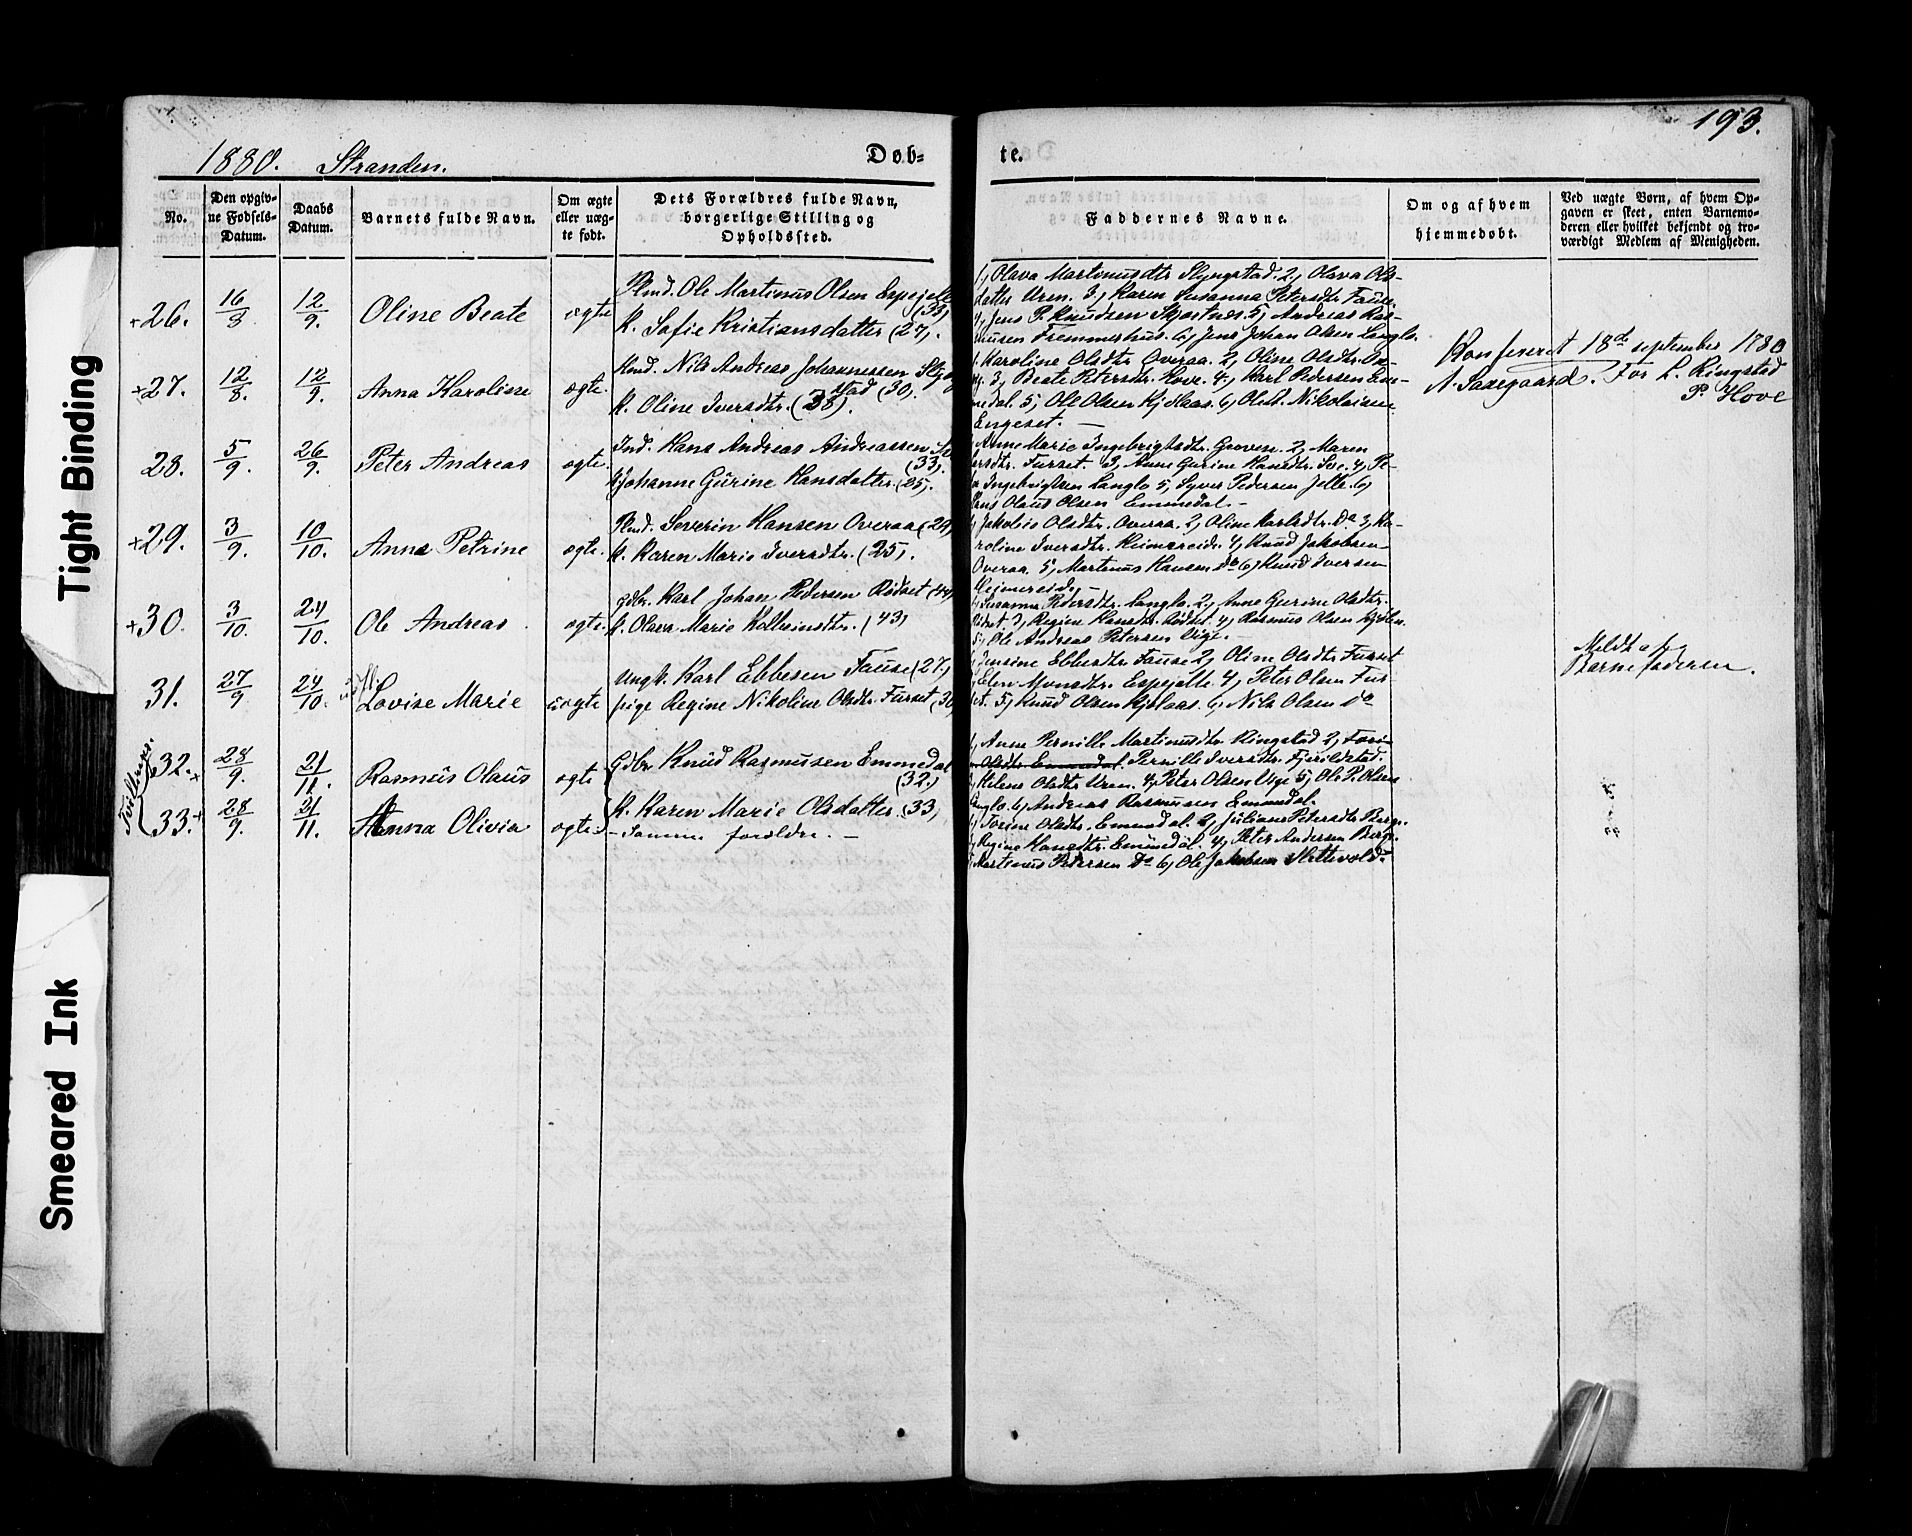 193.
1880. Stranden.
Døb-
te.
No.
Den opgiv-
ne Fødsels-
Datum.
Daabs
Datum.
Barnets fulde Navn.
Om ægte
eller uæg-
te født.
Dets Forældres fulde Navn,
borgerlige Stilling og
Opholdssted.
Faddernes Navne.
Om og af hvem
hjemmedøbt.
Ved uægte Børn, af hvem Op-
gaven er skeet, enten Barnemo-
deren eller hvilket bekjendt og tro-
værdigt Medlem af Menigheden.
+26. 16/8 12/9. Oline Beate ægte
Ole Martinus Olsen Espejelle (33)
k. Sofie Kristiansdatter (27).
1, Olava Martinusdtr Slyngstad. 2, Olava Ols-
datter Uren. 3, Karen Susanna Petersdtr Fause.
4, Jens P. Knudsen 5, Andreas Ras-
musen Fremmerhus. 6, Jens Johan Olsen Langlo.
+27. 12/8. 12/9. Anna Karoline ægte.
Nils Andreas Johannessen
stad (30).
k. Oline Iversdtr. (38).
Karoline Olsdtr Overaa. 2, Oline Olsdtr.
3, Beate Petersdtr. Hove. 4, Karl Pedersen Em-
medal. 5, Ole Olsen Kjølaas. 6, Nikolaisen
Engeset. —
Konfereret 18de september 1880
A. Saxegaard. For L. Ringstad
P. Hove
28. 5/9. 26/9. Peter Andreas ægte.
Ind. Hans Andreas Andreassen
(33).
k Johanne Gurine Hansdatter. (25).
Anne Marie Ingebrigtsdtr. Groven. 2, Maren
Furset. 3, Anne Gurine Hansdtr. 4, Pe-
Ingebrigtsen Langlo 5, Syver Pedersen Jelle. 6,
Hans Olaus Olsen Emmedal. —
+29. 3/9. 10/10. Anna Petrine ægte.
Severin Hansen Overaa (29)
k. Karen Marie Iversdtr. (25).
Olsdtr. Overaa. 2, Oline Karlsdtr. Do 3, Ka-
roline Iversdtr. Heimereide. 4, Knud Jakobsen
Overaa. 5, Martinus Hansen Do 6, Knud Iversen
Heimereide. —
+30. 3/10. 24/10. Ole Andreas ægte.
Gdbr. Karl Johan Pedersen Rødset (44)
k. Olava Marie (43)
1, Susanna Pedersdtr. Langlo. 2, Anne Gurine Olsdtr.
Rødset. 3, Regine Hansdtr. Rødset. 4, Rasmus Olsen
5, Ole Andreas Petersen Uige. —
31. 27/9 24/10. Lovise Marie uægte
Ungk. Karl Ebbesen Fause (27.)
pige Regine Nikoline Olsdtr. Furset (30)
Jensine Ebbesdtr. Fause 2, Oline Olsdtr Furset
Elen Monsdtr. Espejelle. 4, Peter Olsen Fur-
set. 5, Knud Olsen Kjølaas. 6, Nils Olsen Do
Meldt af
Barnefaderen.
Tvillinger.
32.+ 28/9. 21/11. Rasmus Olaus ægte
Gdbr. Knud Rasmusen Emmedal
(32.)
k. Karen Marie Olsdatter. (33)
1, Anne Pernille Martinusdtr Ringstad 2,
Olsdtr Emmedal. Pernille Iversdtr. Fjeildstad.
3, Helene Olsdtr Uren. 4, Peter Olsen Uge 5, Ole P. Olsen
Langlo. 6, Andreas Rasmusen Emmedal.
33.+ 28/9. 21/11. Anna Olivia ægte.
— Samme foreldre. —
1, Olsdtr. Emmedal. 2, Juliane Petersdtr Berge.
3, Regine Hansdtr. Emmedal. 4, Peter Andersen Berge.
5, Martinus Petersen Do 6, Ole Jakobsen
Tight Binding
Smeared Ink